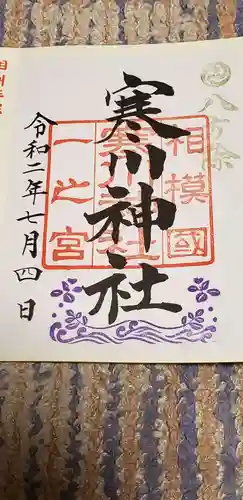 八方除
寒川神社
相模國
一之宮
寒川神社
令和二年七月四日